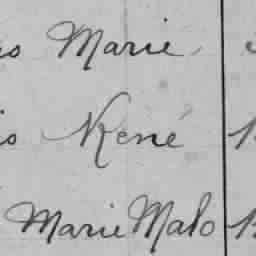 Marie
René
Marie Malo